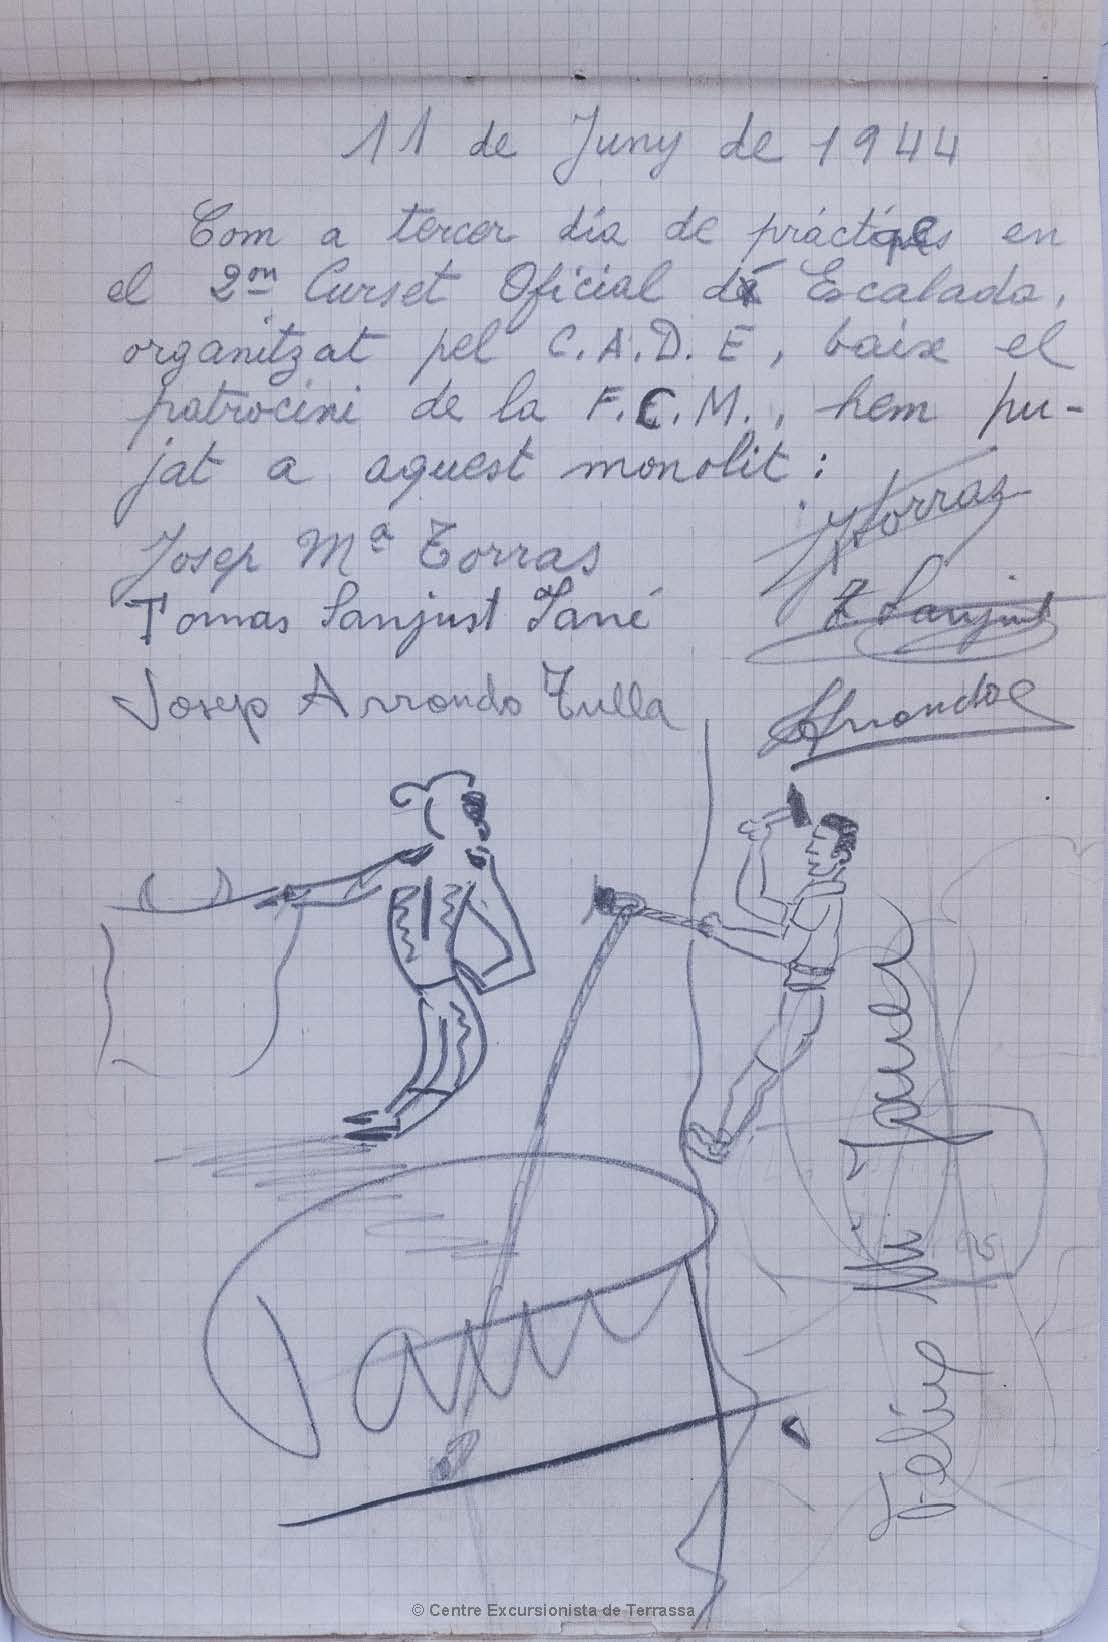 11 de Juny de 1944
Com a tercer día de práctiques en
el 2on Curset Oficial de Escalada,
organitzat pel C.A.D.E, baix el
patrocini de la F.C.M., hem pu-
jat a aquest monolit:
Josep Mª Torras
JTorras
Tomas Sanjust Tané
T Sanjust
Josep Arrondo Tulla
Arrondo
Feliu
© Centre Excursionista de Terrassa